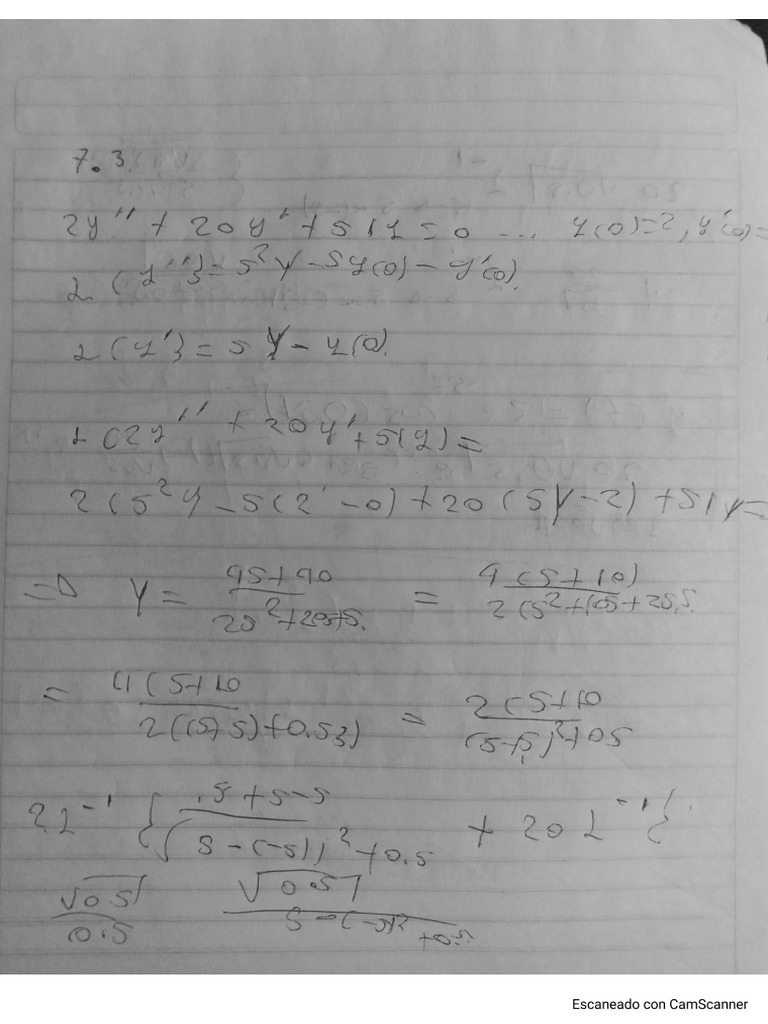 7.3.
2y'' + 20y' + 51y = 0 ... y(0)=2, y'(0)=
L{y''} = s²Y - sy(0) - y'(0).
L{y'} = sY - y(0).
L(2y'' + 20y' + 51y) =
2(s²Y - s(2) - 0) + 20(sY - 2) + 51Y =
=> Y = 4s+40 / 2s²+20s+5. = 4(s+10) / 2(s²+10s+25.5.
= 4(s+10 / 2((s+5)+0.53) = 2(s+10 / (s+5)²+05
2L⁻¹ { s+5-5 / (s-(-5))²+0.5 + 20L⁻¹{
√0.5 / 0.5 √0.5 / s-(-5)²+0.5.
Escaneado con CamScanner